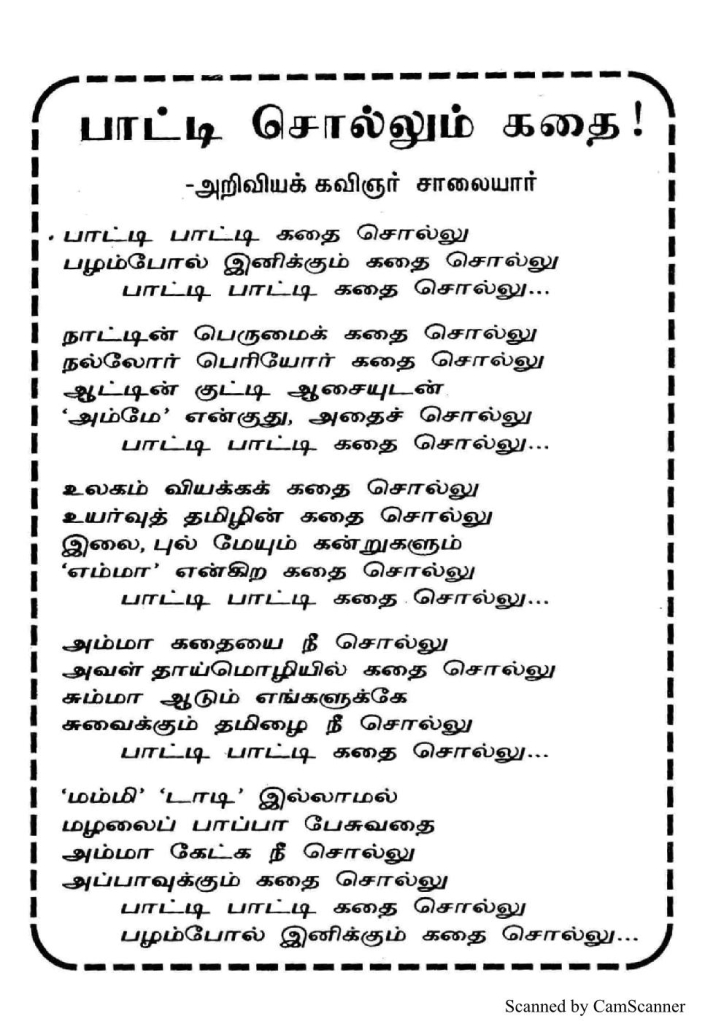 பாட்டி சொல்லும் கதை!
-அறிவியக் கவிஞர் சாலையார்
பாட்டி பாட்டி கதை சொல்லு
பழம்போல் இனிக்கும் கதை சொல்லு
பாட்டி பாட்டி கதை சொல்லு...
நாட்டின் பெருமைக் கதை சொல்லு
நல்லோர் பெரியோர் கதை சொல்லு
ஆட்டின் குட்டி ஆசையுடன்
‘அம்மே’ என்குது, அதைச் சொல்லு
பாட்டி பாட்டி கதை சொல்லு...
உலகம் வியக்கக் கதை சொல்லு
உயர்வுத் தமிழின் கதை சொல்லு
இலை, புல் மேயும் கன்றுகளும்
‘எம்மா’ என்கிற கதை சொல்லு
பாட்டி பாட்டி கதை சொல்லு...
அம்மா கதையை நீ சொல்லு
அவள் தாய்மொழியில் கதை சொல்லு
சும்மா ஆடும் எங்களுக்கே
சுவைக்கும் தமிழை நீ சொல்லு
பாட்டி பாட்டி கதை சொல்லு...
‘மம்மி’ ‘டாடி’ இல்லாமல்
மழலைப் பாப்பா பேசுவதை
அம்மா கேட்க நீ சொல்லு
அப்பாவுக்கும் கதை சொல்லு
பாட்டி பாட்டி கதை சொல்லு
பழம்போல் இனிக்கும் கதை சொல்லு...
Scanned by CamScanner